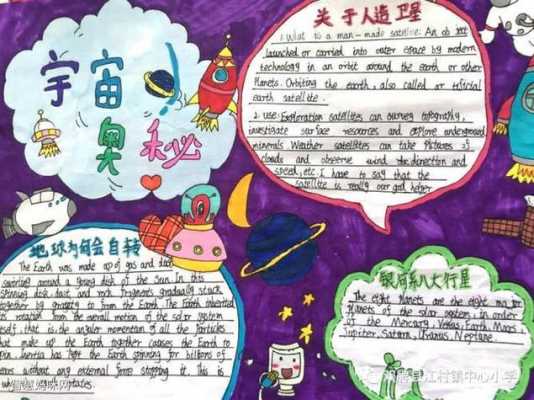 宇宙
奥秘
关于人造卫星
1. What is a man-made satellite: An
launched or carried into outer space by modern
technology in an orbit around the earth or other
Planets. Orbiting the earth, also called
earth satellite.
2. use: Exploration satellites can survey topography,
investigate surface resources and explore underground
minerals Weather satellites can take Pictures of
clouds and observe wind direction and
speed, etc I have to say that the
satellite is really our god helper
地球为何会自转
The Earth was made up of gas and dust
swirling around a young disk of the sun. In this
spinning disk, dust and rock fragments gradually stuck
together by gravity to form the Earth. The Earth inherited
its rotation from the overall motion of the solar system
itself, that is, the angular momentum of all the Particles
that make up the Earth together causes the Earth to
spin. Inertia has kept the Earth spinning for billions of
years without any external force stopping it. This is
why the
银河系八大行星
The eight planets are the eight major
planets of the solar system, in order
the Mercury, Venus, Earth, Mars
Jupiter, Saturn, Uranus, Neptune.
江村镇中心小学